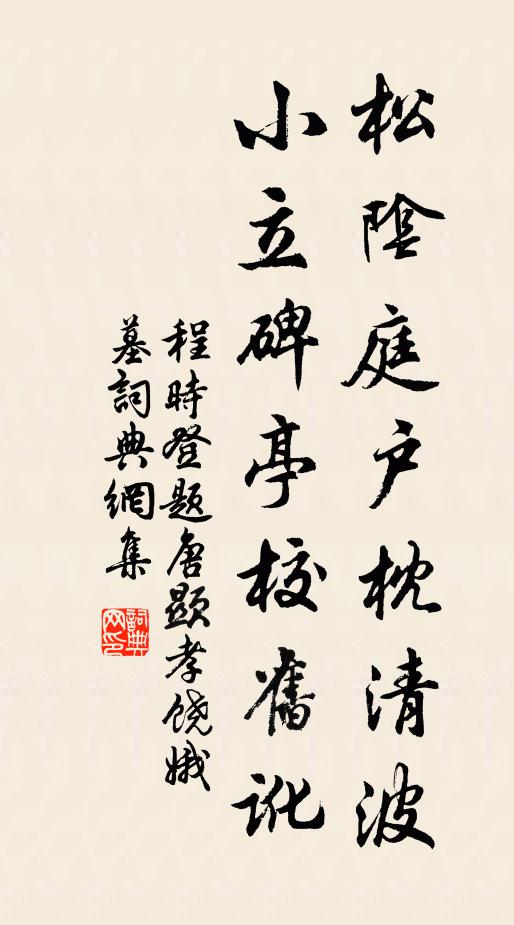 松陰庭户枕清波
小立碑亭校舊訛
程時登題唐顯孝饒娥
墓詞典網集
詞典
网印